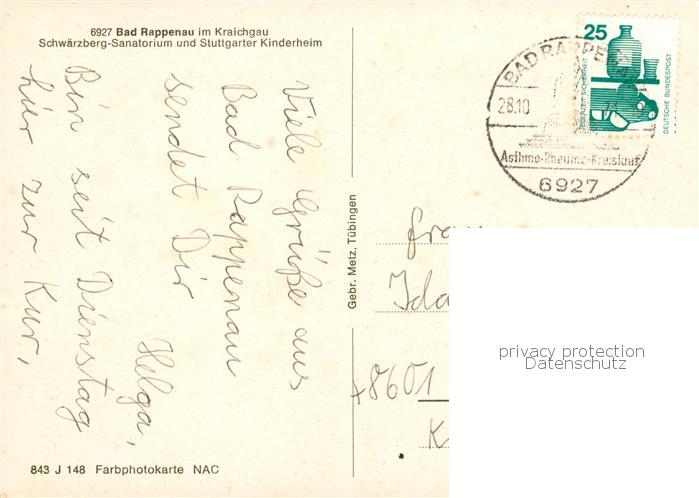 6927 Bad Rappenau im Kraichgau
Schwärzberg-Sanatorium und Stuttgarter Kinderheim
Viele Grüße aus
Bad Rappenau
sendet Dir
Helga,
Bin seit Dienstag
hier zur Kur,
843 J 148 Farbphotokarte NAC
Gebr. Metz, Tübingen
BAD RAPPE
28.10
Asthma-Rheuma-Kreislauf
6927
25
JEDERZEIT SICHERHEIT
DEUTSCHE BUNDESPOST
Frau
Ida
8601
K
privacy protection
Datenschutz